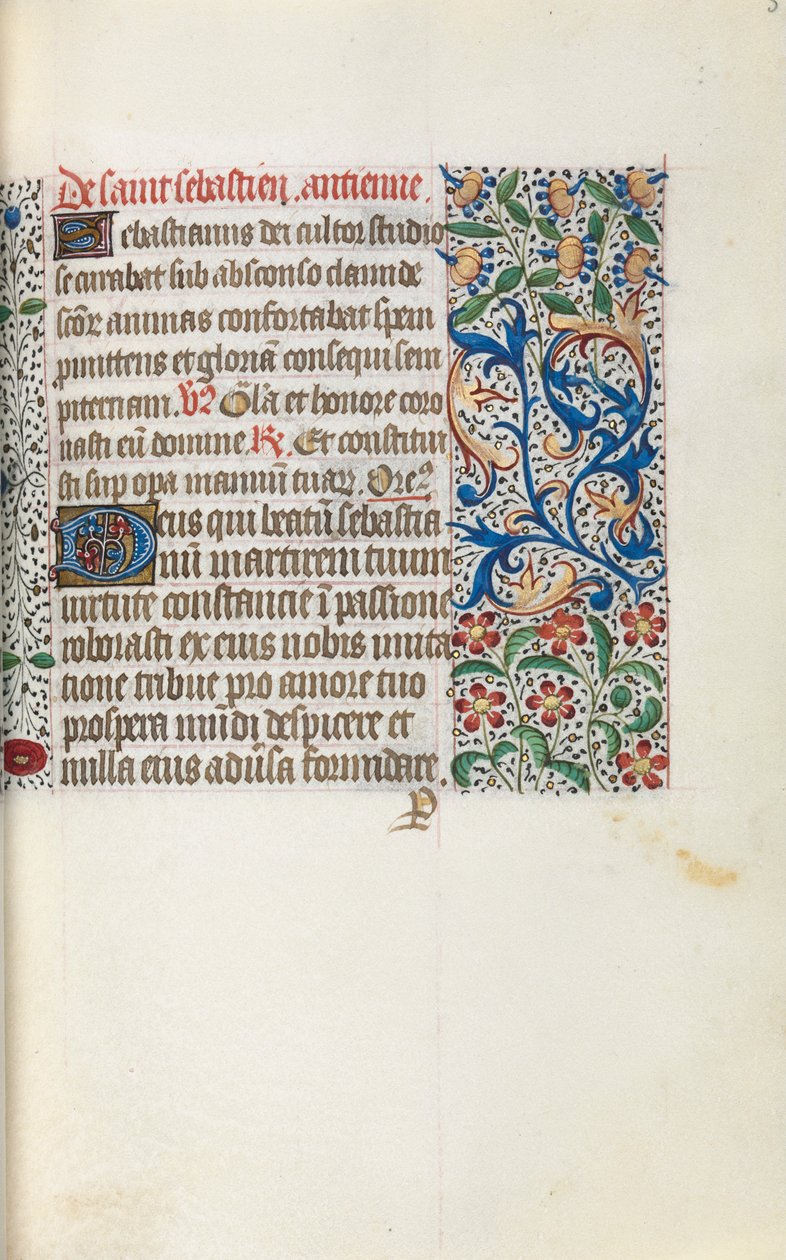 De saint sebastien. antienne.
Sebastianus dei cultor studio
se curabat sub absconso clamide
scōr animas confortabat spem
pmittens et gloriā consequi sem
piternam. V̄ Glīa et honore coro
nasti eū domine. R̄. Et constitui
sti sup opa manuū tuaꝝ. Oreꝰ
Deus qui beatū sebastia
nū martirem tuum
uirtute constancie ī passione
roborasti ex eius nobis imita
tione tribue pro amore tuo
prospera mūdi despicere et
nulla eius aduſa formidare.
P